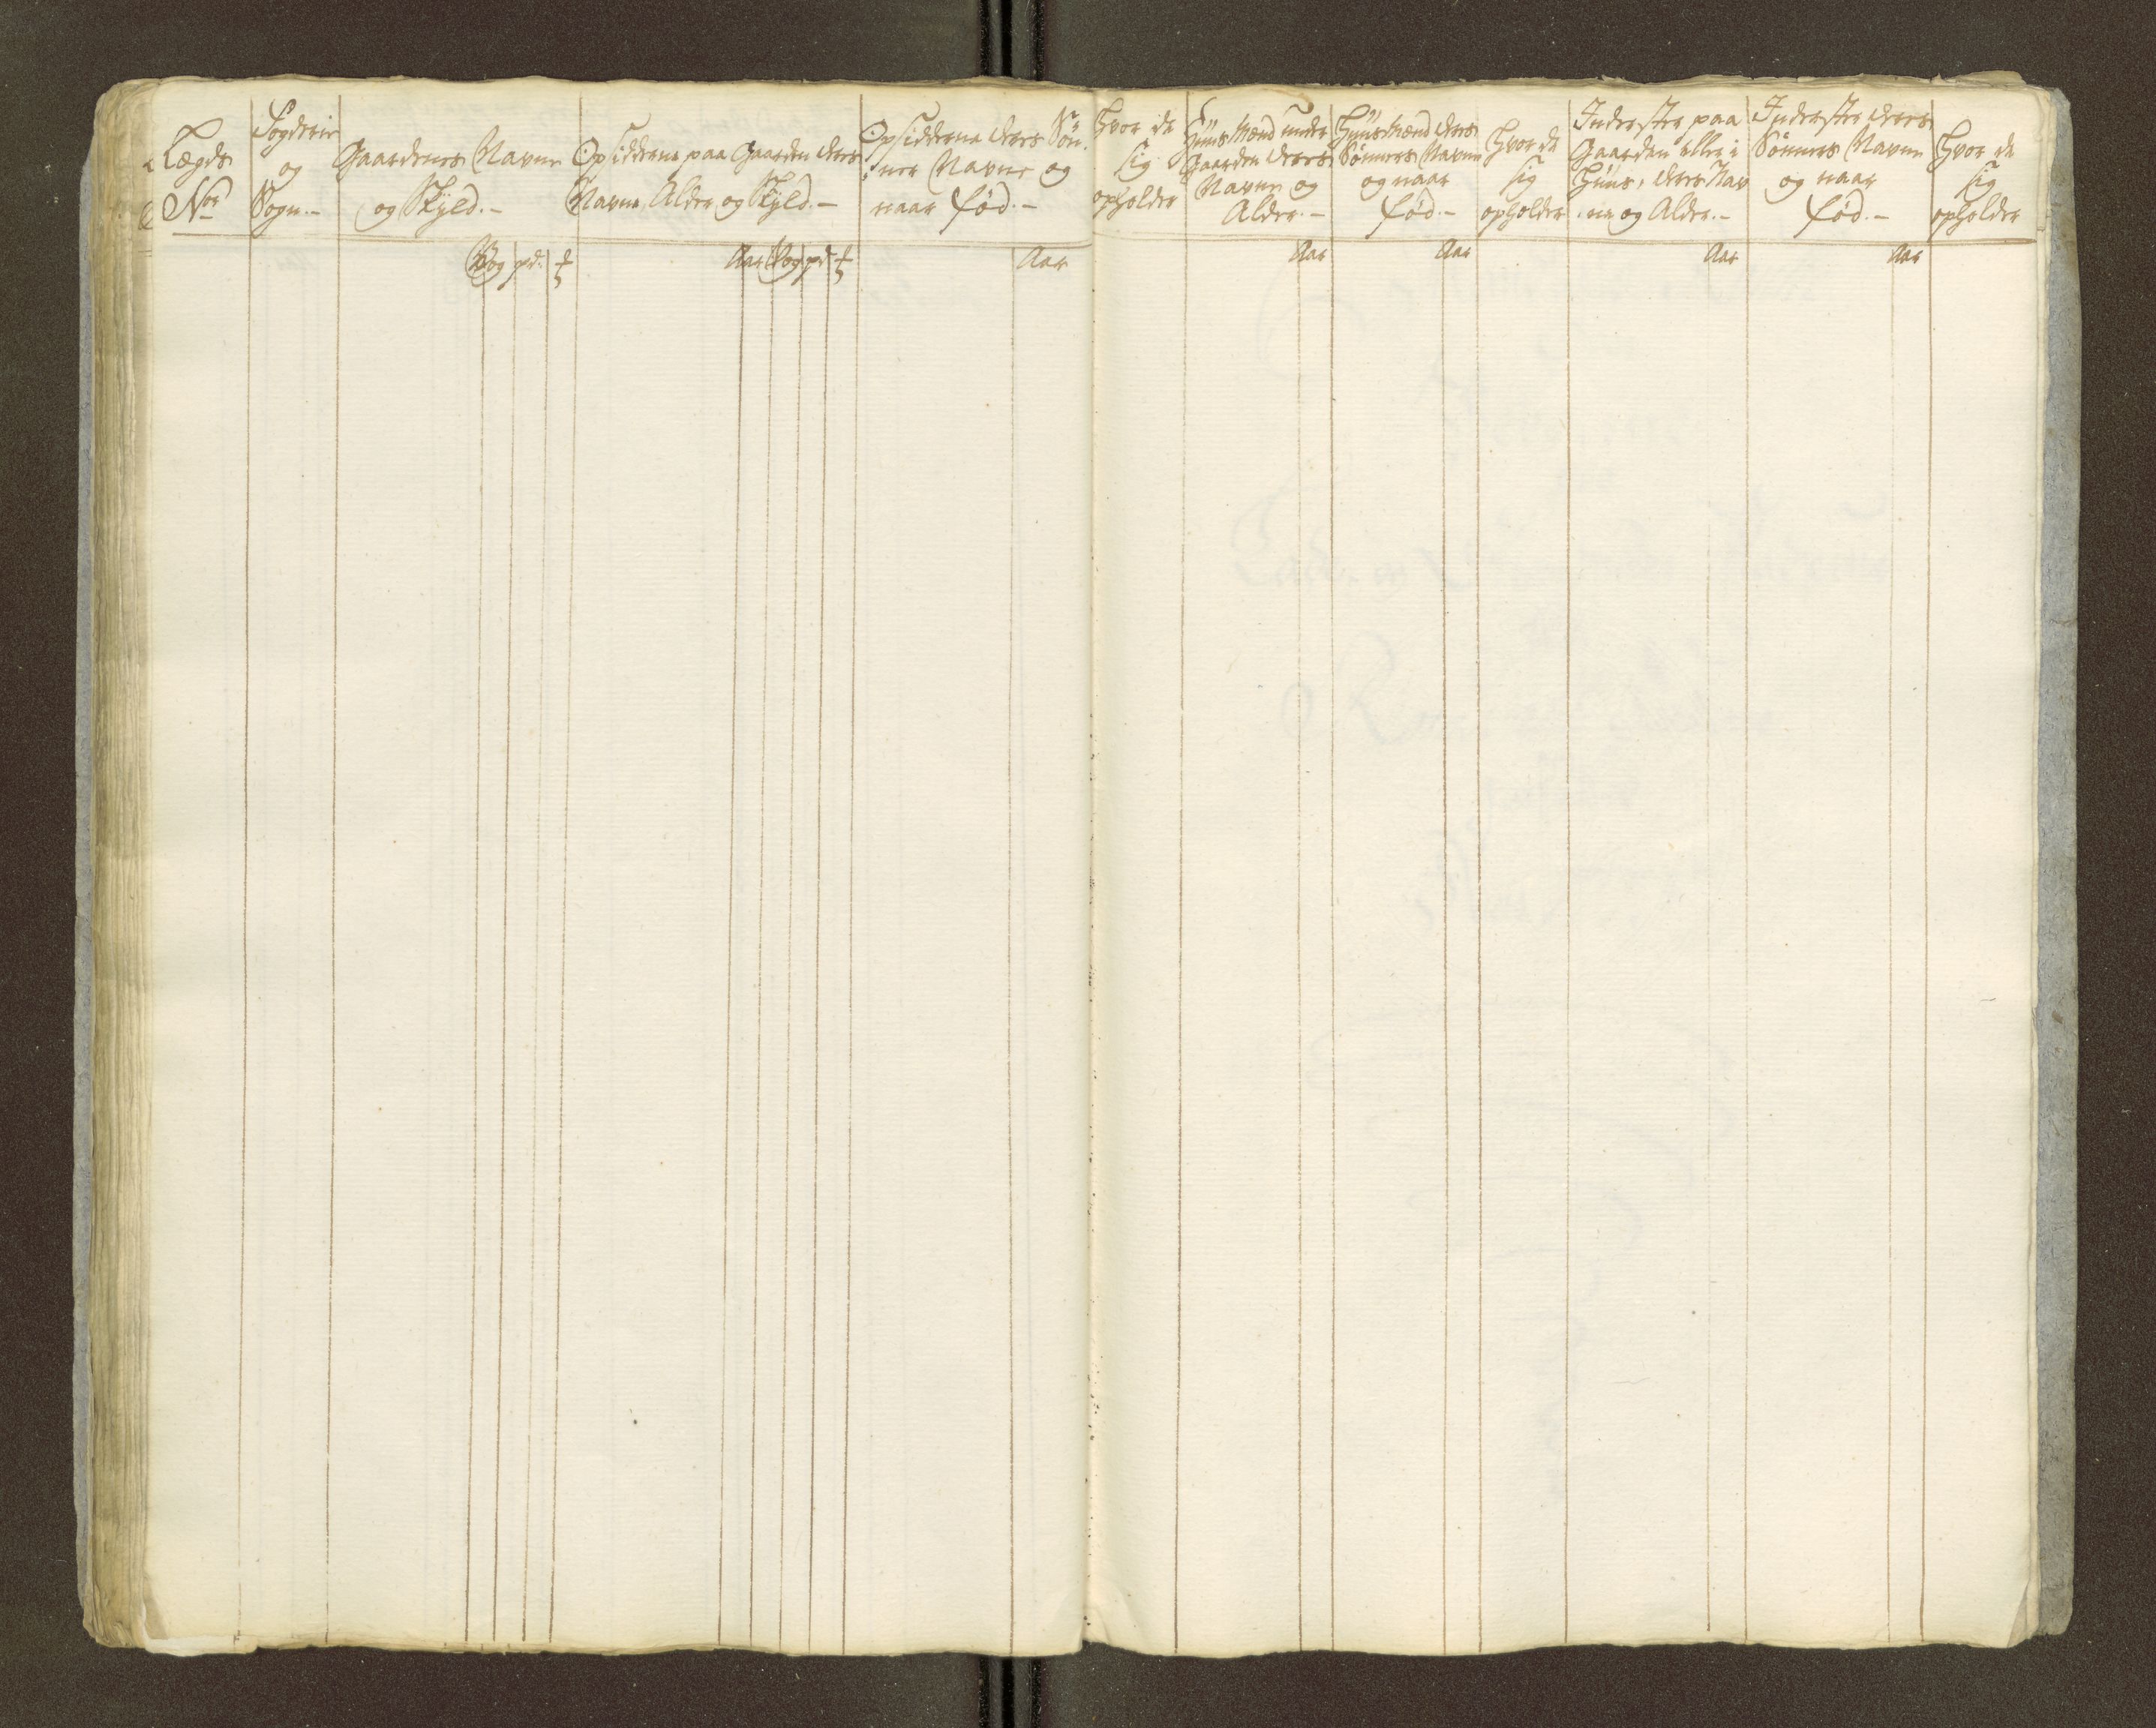 Lægds
No
Fogderie
og
Sogn.-
Gaardenes Navne
og Skyld.-
Vog pd:
Opsidderne paa Gaarden deres
Navne Alder og Skyld.-
Aar Vog pd
Opsidderne deres Søn-
ner Navne og
naar fød.-
Aar
Hvor de
sig
opholder
Huus Mænd under
Gaarden deres
Navne og
Alder.-
Aar
Huus Mænd deres
Sønners Navne
og naar
fød.-
Aar
Hvor de
sig
opholder
Inderster paa
Gaarden eller i
Huus, deres Nav
ne og Alder.-
Aar
Inderster deres
Sønners Navne
og naar
fød.-
Aar
Hvor de
sig
opholder